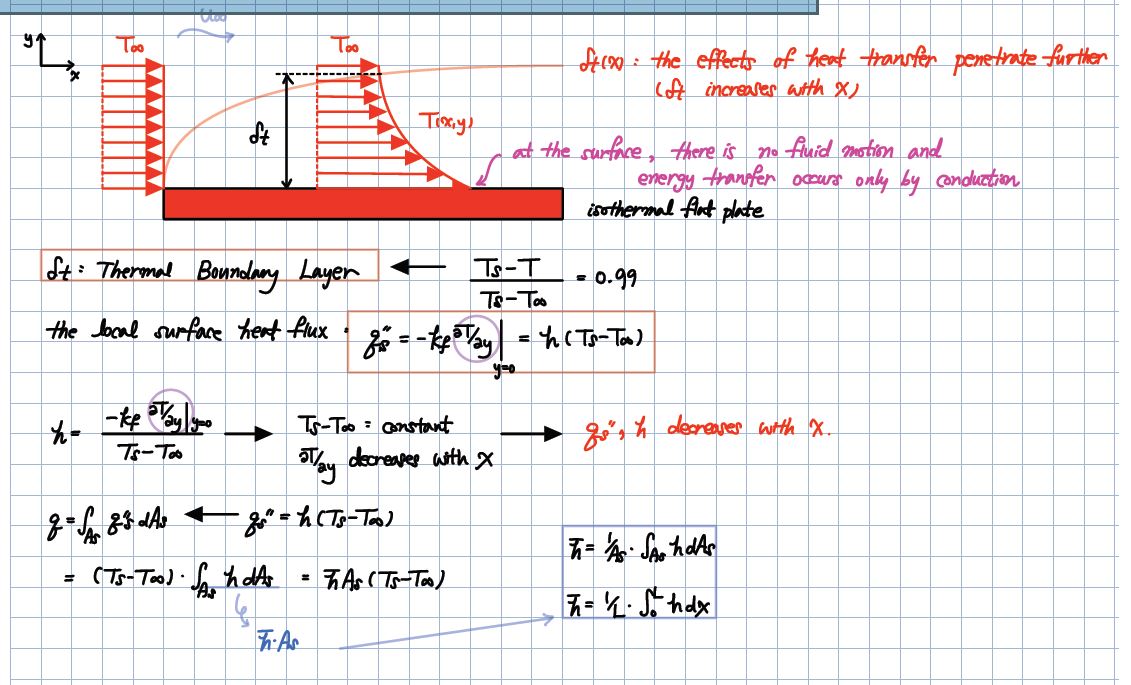 u∞
y
x
T∞
T∞
δt
T(x,y)
δt(x) : the effects of heat transfer penetrate further
(δt increases with x)
at the surface, there is no fluid motion and
energy transfer occurs only by conduction
isothermal flat plate
δt : Thermal Boundary Layer ← (Ts-T)/(Ts-T∞) = 0.99
the local surface heat flux : qs″ = -kf ∂T/∂y|y=0 = h (Ts-T∞)
h = (-kf ∂T/∂y|y=0)/(Ts-T∞) → Ts-T∞ : constant
∂T/∂y decreases with x
→ qs″, h decreases with x.
q = ∫As qs″ dAs ← qs″ = h (Ts-T∞)
= (Ts-T∞) · ∫As h dAs = h̄ As (Ts-T∞)
h̄·As
h̄ = 1/As · ∫As h dAs
h̄ = 1/L · ∫0L h dx